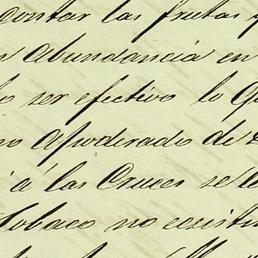 contar las frutas
Abundancia en
ser efectivo lo
Apoderado de
á las Cruces se
Tobaco no